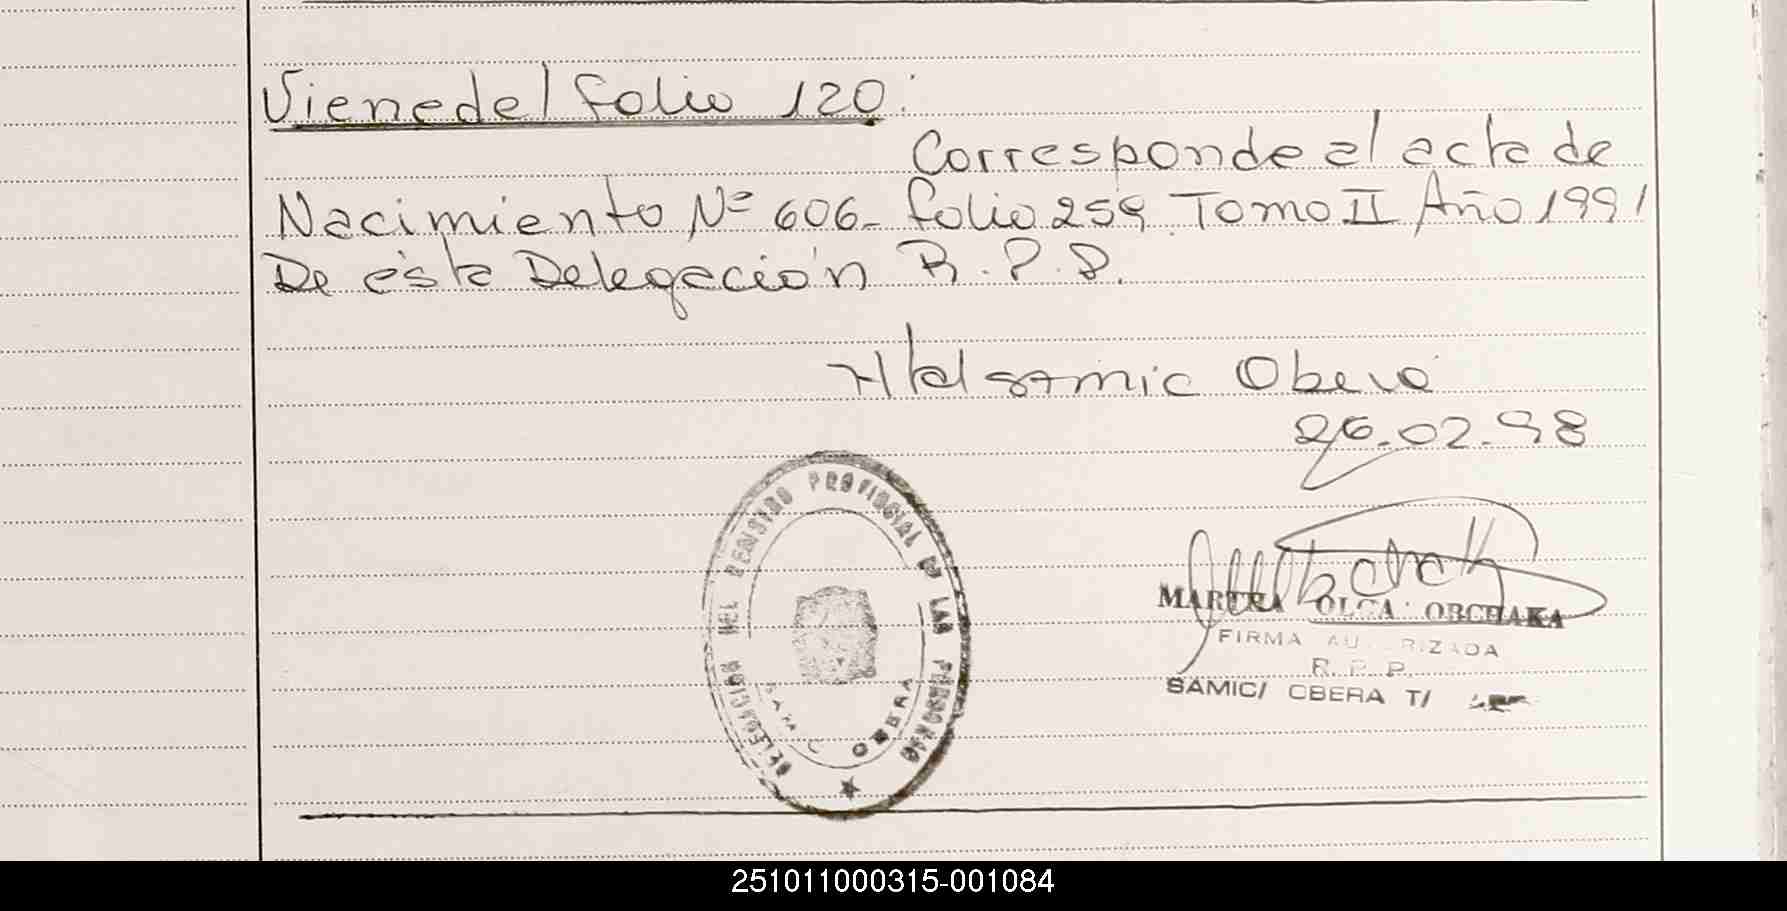 Viene del folio 120:
Corresponde al acta de
Nacimiento Nº 606- folio 259 Tomo II Año 1991
De ésta Delegación R.P.P.
Htal samic Oberá
26.02.98
DELEGACION DEL REGISTRO PROVINCIAL DE LAS PERSONAS
SAMIC
OBERA
MARTHA OLGA OBCHAKA
FIRMA AUTORIZADA
R. P. P.
SAMIC/ OBERA T/
251011000315-001084